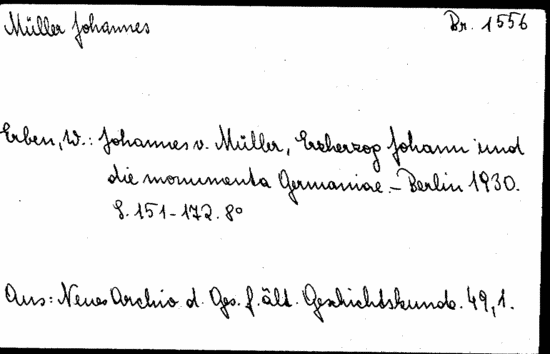 Müller Johannes
Br. 1556
Erben, W.: Johannes v. Müller, Erzherzog Johann und
die monumenta Germaniae. - Berlin 1930.
S. 151-172. 8°
Aus: Neues Archiv d. Ges. f. ält. Geschichtskunde. 49,1.